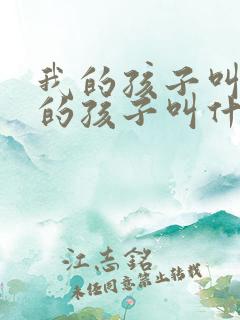 我的孩子叫
的孩子叫什
江志銘
未经同意禁止转载